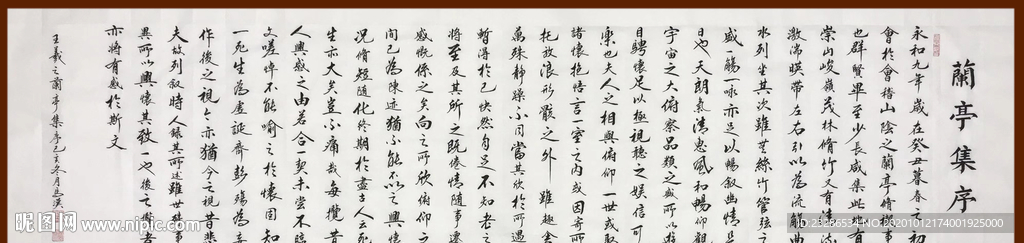 蘭亭集序
永和九年歲在癸丑暮春之初
會於會稽山陰之蘭亭脩禊事
也群賢畢至少長咸集此地有
崇山峻嶺茂林脩竹又有清流
激湍暎帶左右引以為流觴曲
水列坐其次雖無絲竹管弦之
盛一觴一詠亦足以暢敘幽情是
日也天朗氣清惠風和暢仰觀
宇宙之大俯察品類之盛所以遊
目騁懷足以極視聽之娛信可
樂也夫人之相與俯仰一世或取
諸懷抱悟言一室之內或因寄所
托放浪形骸之外雖趣舍
萬殊靜躁不同當其欣於所遇
暫得於己快然自足不知老之
將至及其所之既倦情隨事遷
感慨係之矣向之所欣俯仰之
間已為陳迹猶不能不以之興懷
況脩短隨化終期於盡古人云死
生亦大矣豈不痛哉每攬昔
人興感之由若合一契未嘗不臨
文嗟悼不能喻之於懷固知
一死生為虛誕齊彭殤為妄
作後之視今亦猶今之視昔悲
夫故列敘時人錄其所述雖世殊事
異所以興懷其致一也後之攬者
亦將有感於斯文
王羲之蘭亭集序己亥冬月
昵图网 www.nipic.com
ID:23286534 NO:20201012174001925000